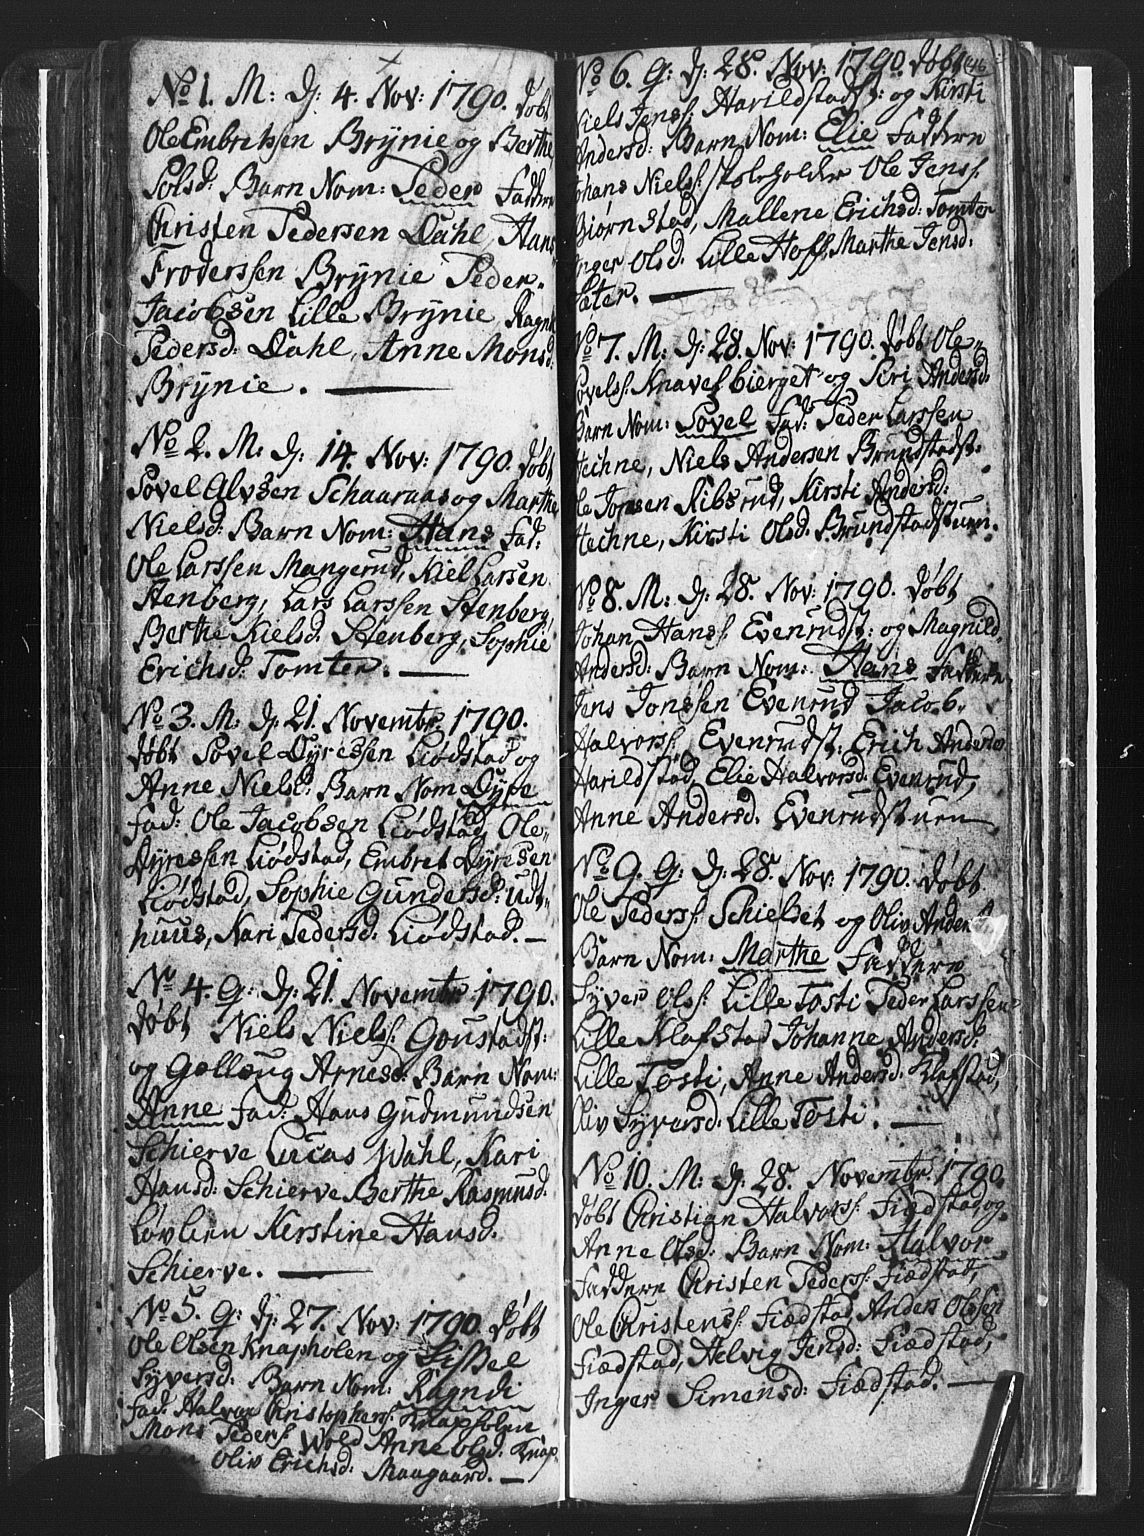 No 1. M: D: 4. Nov: 1790. døbt
Ole Embretssen Brÿnie og Berthe
Polsd: Barn Nom: Peder Faddere
Christen Pedersen Dahl, Hans
Froderssen Brÿnie Peder
Jacobsen Lille Brÿnie, Ragn
Pedersd: Dahl, Anne Monsd:
Brÿnie.
No 2. M. D: 14. Nov: 1790. døbt
Povel Alvsen Schaaraas og Marthe
Nielsd: Barn Nom: Hans Fad:
Ole Larssen Mangerud, Kiel Larsen
Stenberg, Lars Larssen Stenberg,
Berthe Kielsd. Stenberg, Sophie
Erichsd: Tomter.
No 3. M: D: 21. Novembr: 1790.
døbt Povel Dyressen Liødstad og
Anne Nielsd: Barn Nom Dyre
Fad: Ole Jacobsen Liødstad, Ole
Dyressen Liødstad, Embret Dyresen
Liødstad, Sophie Gundersd: udt-
huus, Kari Pedersd: Liødstad.
No 4. Q: D: 21. Novembr: 1790.
døbt Niels Niels: Goustadst:
og Gollaug Arnesd: Barn Nom:
Anne Fad: Hans Gudmundsen
Schierve Lucas Wahl, Kari
Hansd: Schierve Berthe Rasmusd.
Løvlien Kerstine Hansd.
Schierve.
No 5. Q: D: 27. Nov: 1790. døbt
Ole Olsen Knapholen og Sissel
Syversd: Barn Nom: Ragndi
Fad: Halvor Christophers: Knapholen
Mons Peders: Wold Anne Olsd: Knap
Oliv Erichsd: Maagaard.
46
No 6. Q: D: 28. Nov: 1790. døbt
Niels Jens: Harildstadst: og Kirsti
Andersd: Barn Nom: Elie Faddere
Johans Niels: skoleholder Ole Jens:
Biørnstad, Mallene Erichsd: Tomter
Inger Olsd: Lille Hoff, Marthe Jensd:
Sæter.
No 7. M: D: 28. Nov: 1790. døbt Ole
Povels: Knavelbierget og Siri Andersd:
Barn Nom: Povel Fad: Peder Larssen
Hechne, Niels Andersen Brundstadst:
Ole Jonsen Ribsrud, Kirsti Andersd:
Hechne, Kirsti Olsd: Brundstadstuen.
No 8. M: D: 28. Nov: 1790. døbt
Johan Hans: Evenrudst: og Magnild
Andersd: Barn Nom: Hans Faddere
Jens Jonssen Evenrud Jacob
Halvors: Evenrudst: Erich Anders
Harildstad, Elie Halvorsd: Evenrud,
Anne Andersd. Evenrudstuen
No 9. Q: D: 28. Nov: 1790. døbt
Ole Peders: Schieldet og Oliv Andersd
Barn Nom: Marthe Faddere
Syver Ols: Lille Tosti Peder Larssen
Lille Klafstad Johanne Andersd:
Lille Tosti, Anne Andersd: Klafstad,
Oliv Syversd: Lille Tosti.
No 10. M: D: 28. Novembr: 1790.
døbt Christian Halvors: Fiædstad og
Anne Olsd: Barn Nom: Halvor
Faddere Christen Peders: Fiædstad,
Ole Christens: Fiædstad, Anders Olssen
Fiædstad, Helvig Jensd: Fiædstad,
Inger Simensd: Fiædstad.